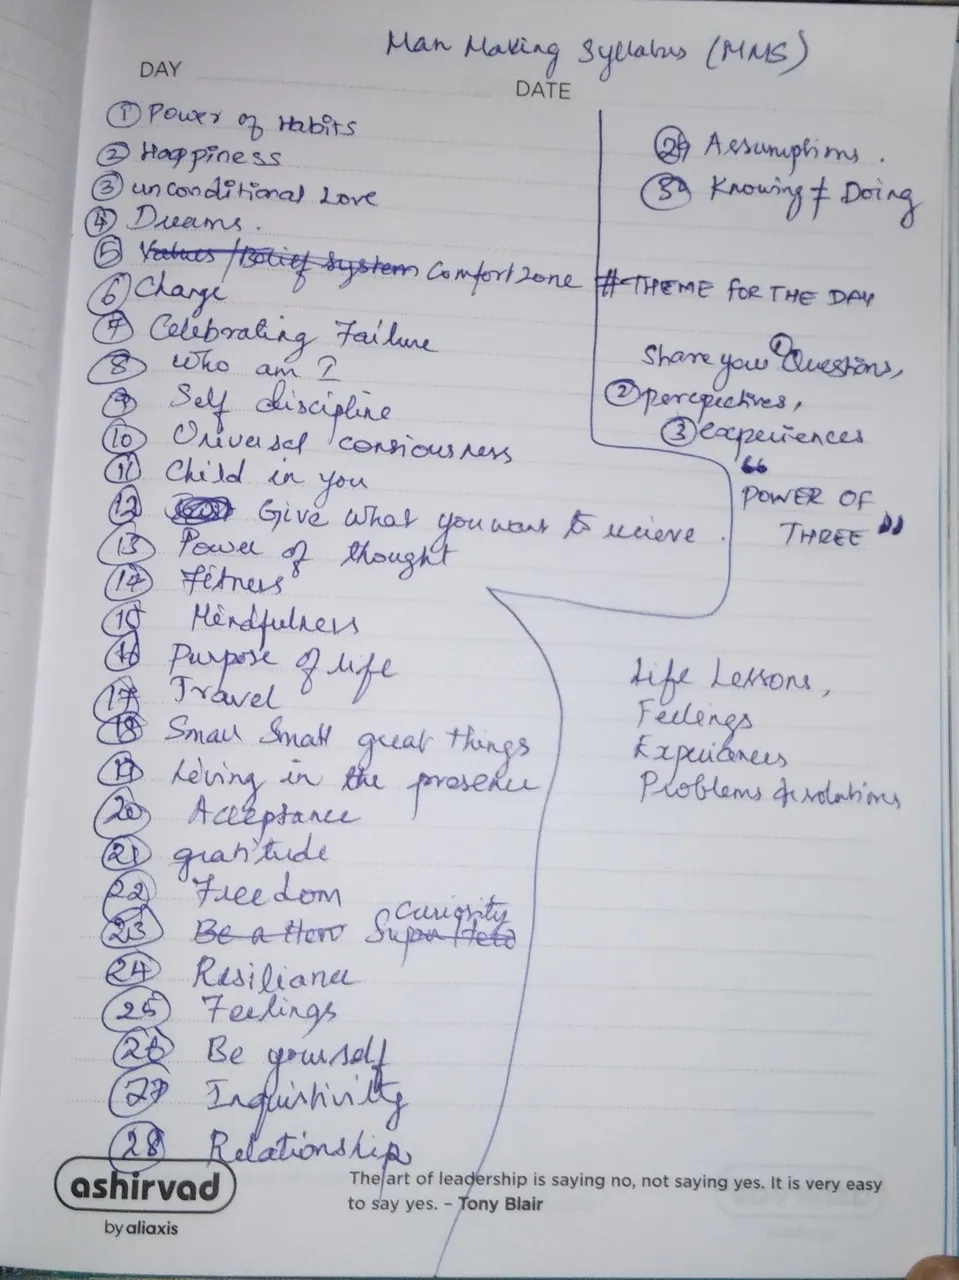 Man Making Syllabus (MMS)
DAY
DATE
① Power of Habits
② Happiness
③ unconditional Love
④ Dreams.
⑤ Values / Belief System Comfort zone
⑥ Change
⑦ Celebrating Failure
⑧ Who am I
⑨ Self discipline
⑩ Universal consiousness
⑪ Child in you
⑫ Give what you want to recieve.
⑬ Power of thought
⑭ Fitness
⑮ Mindfulness
⑯ Purpose of life
⑰ Travel
⑱ Small Small great things
⑲ Living in the presence
⑳ Acceptance
㉑ gratitude
㉒ Freedom
curiosity
㉓ Be a Hero Super Hero
㉔ Resiliance
㉕ Feelings
㉖ Be yourself
㉗ Inquistivity
㉘ Relationship
㉙ Assumptions.
㉚ Knowing ≠ Doing
# THEME FOR THE DAY
Share your ① Questions,
② perspectives,
③ experiences
“
POWER OF
THREE ”
Life Lessons,
Feelings
Experiances
Problems & solutions
ashirvad
by aliaxis
The art of leadership is saying no, not saying yes. It is very easy
to say yes. – Tony Blair